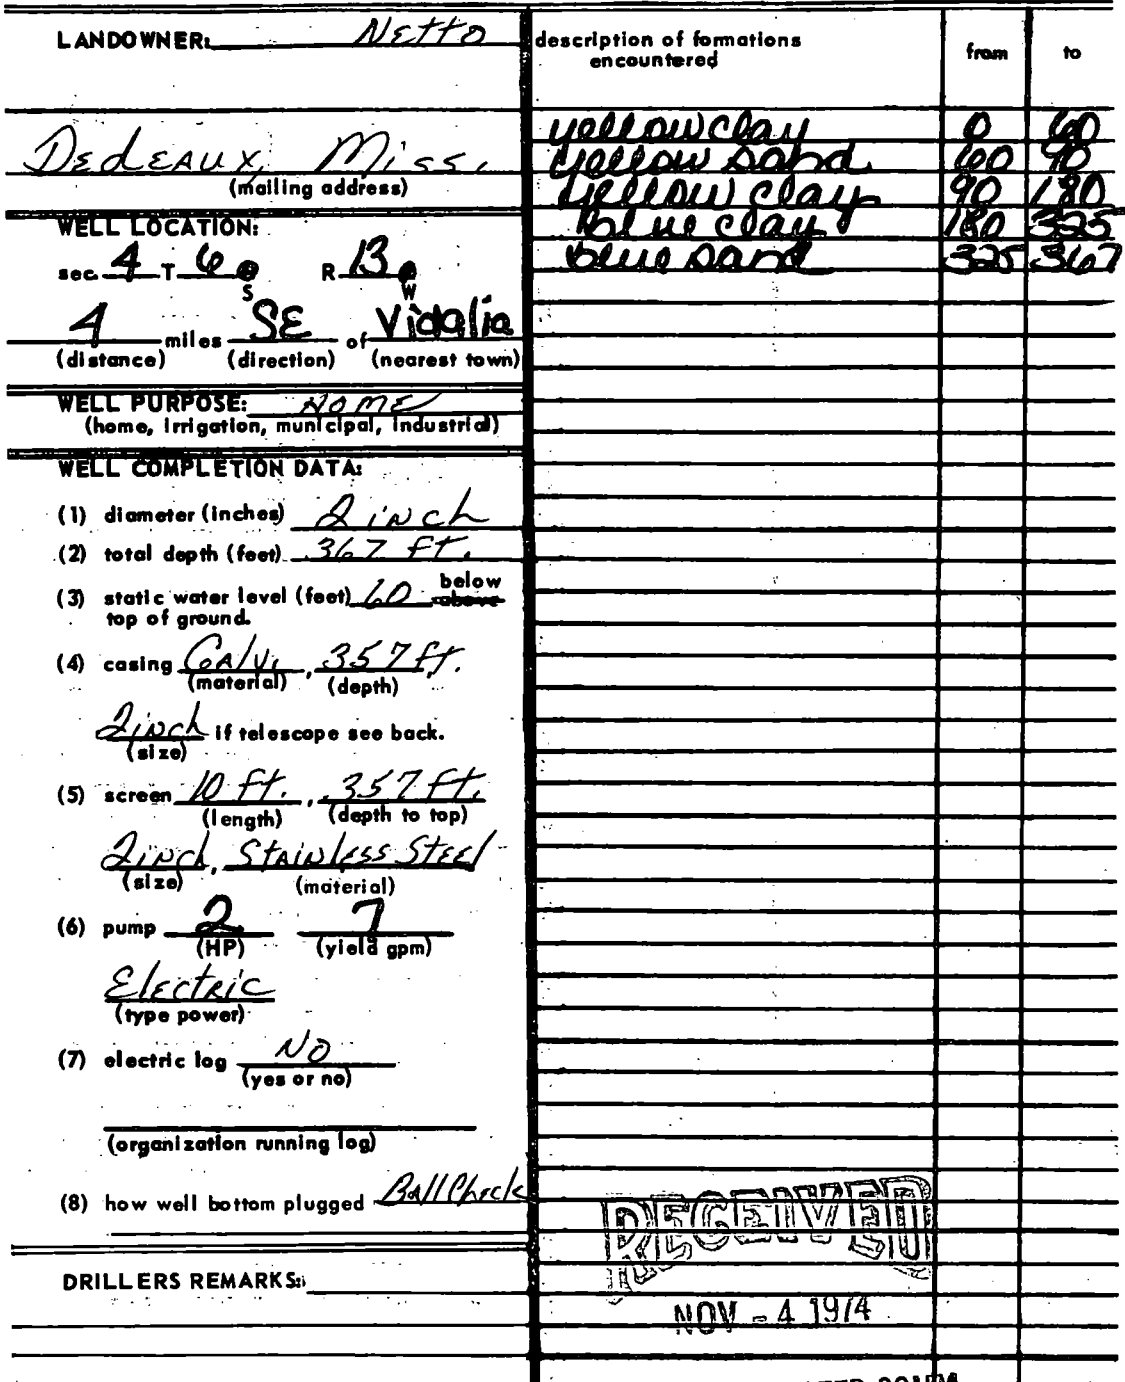 LANDOWNER: Netto
Dedeaux, Miss.
(mailing address)
WELL LOCATION:
sec. 4 T 6 S R 13 W
4 miles SE of Vidalia
(distance) (direction) (nearest town)
WELL PURPOSE: HOME
(home, irrigation, municipal, industrial)
WELL COMPLETION DATA:
(1) diameter (inches) 2 inch
(2) total depth (feet) 367 ft.
(3) static water level (feet) 60 below above
top of ground.
(4) casing GALV. , 357 ft.
(material) (depth)
2 inch if telescope see back.
(size)
(5) screen 10 ft. , 357 ft.
(length) (depth to top)
2 inch, Stainless Steel
(size) (material)
(6) pump 2 7
(HP) (yield gpm)
Electric
(type power)
(7) electric log NO
(yes or no)
(organization running log)
(8) how well bottom plugged Ball Check
DRILLERS REMARKS:
description of formations from to
encountered
yellow clay 0 60
yellow sand 60 90
yellow clay 90 180
blue clay 180 325
blue sand 325 367
RECEIVED
NOV - 4 1974